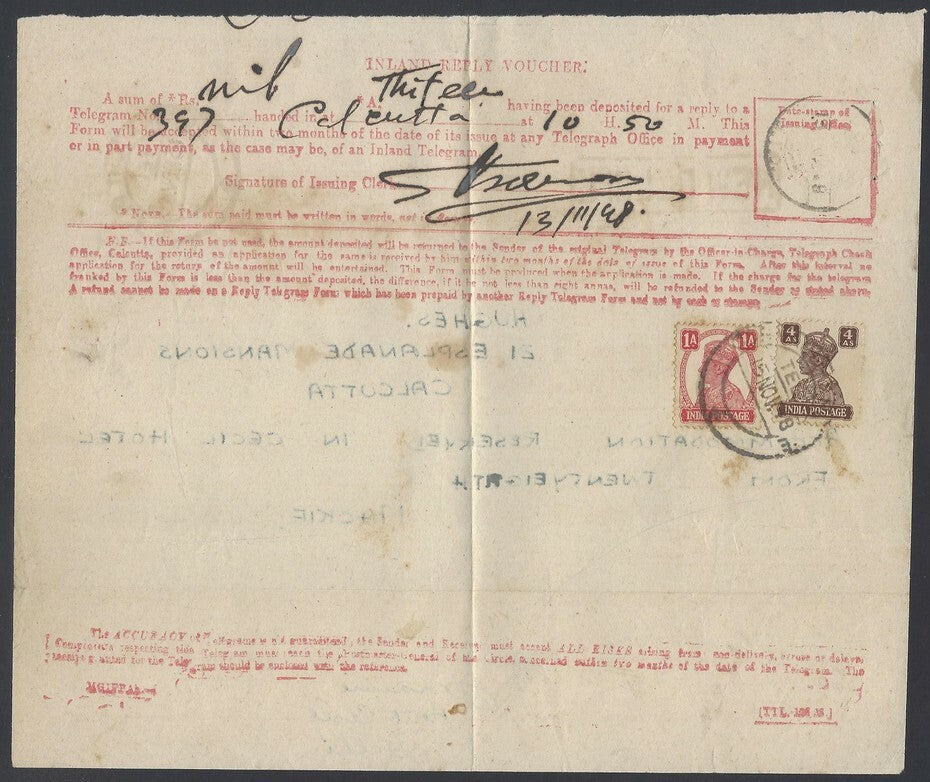 INLAND REPLY VOUCHER.
A sum of *Rs. nil *A. Thifteen having been deposited for a reply to a
Telegram No. 397 handed in at Calcutta at 10 H. 50 M. This
Form will be accepted within two months of the date of its issue at any Telegraph Office in payment
or in part payment, as the case may be, of an Inland Telegram.
Date-stamp of
Issuing Office.
Signature of Issuing Clerk
13/11/48.
* NOTE.—The sum paid must be written in words, not in
N.B.—If this Form be not used, the amount deposited will be returned to the Sender of the original Telegram by the Officer-in-Charge, Telegraph Check
Office, Calcutta, provided an application for the same is received by him within two months of the date of issue of this Form. After this interval no
application for the return of the amount will be entertained. This Form must be produced when the application is made. If the charge for the telegram
franked by this Form is less than the amount deposited, the difference, if it be not less than eight annas, will be refunded to the Sender as stated above.
A refund cannot be made on a Reply Telegram Form which has been prepaid by another Reply Telegram Form and not by cash or stamps.
HUGHES.
21 ESPLANADE MANSIONS
CALCUTTA
1A 1A
INDIA POSTAGE
4 AS 4 AS
INDIA POSTAGE
15 NOV 48
RESERVED IN CECIL HOTEL
FROM TWENTYEIGHTH
The ACCURACY of Telegrams is not guaranteed, the Sender and Receiver must accept ALL RISKS arising from non-delivery, errors or delays.
Complaints respecting this Telegram must reach the Postmaster-General of the Circle concerned within two months of the date of the Telegram. The
receipt granted for the Telegram should be enclosed with the reference.